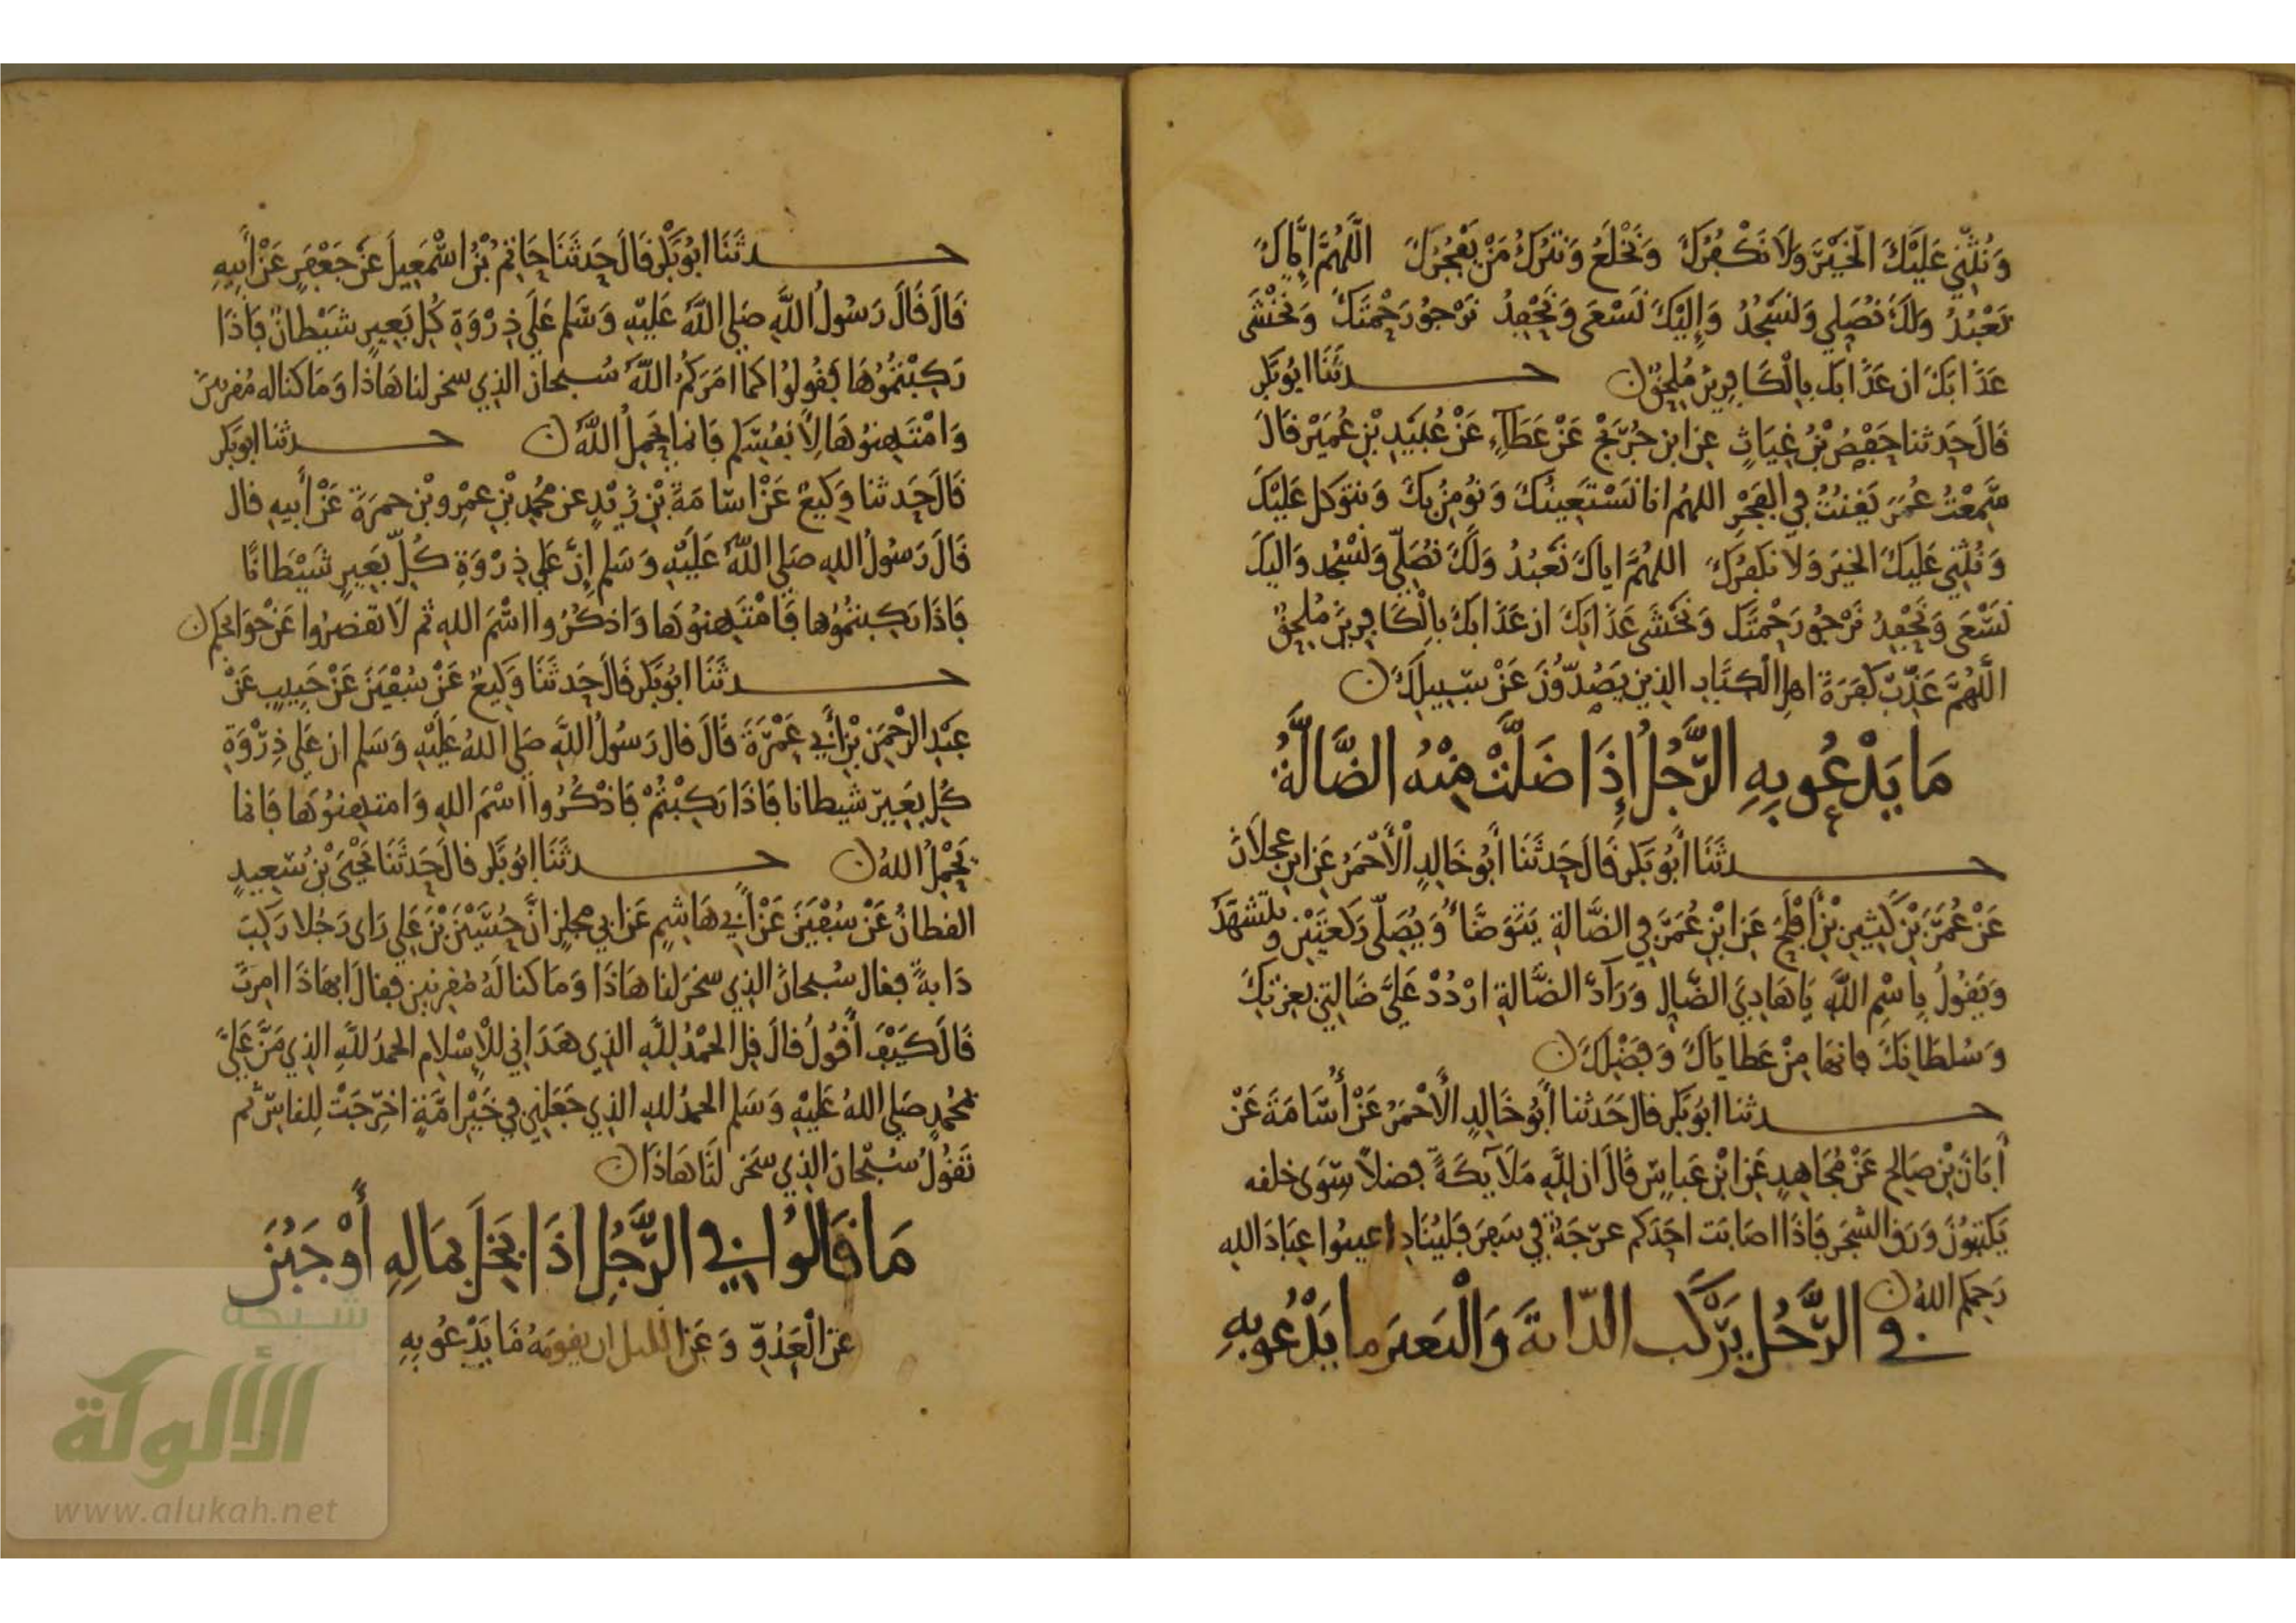 وَنُثْنِي عَلَيْكَ الْخَيْرَ وَلَا نَكْفُرُكَ وَنَخْلَعُ وَنَتْرُكُ مَنْ يَفْجُرُكَ اللَّهُمَّ إِيَّاكَ
نَعْبُدُ وَلَكَ نُصَلِّي وَنَسْجُدُ وَإِلَيْكَ نَسْعَى وَنَحْفِدُ نَرْجُو رَحْمَتَكَ وَنَخْشَى
عَذَابَكَ ان عَذَابَك بِالْكَافِرِينَ مُلْحِقٌ حدثَنَا ابُو بَكْر
قَالَ حَدثنا حَفْصُ بْنُ غِيَاثٍ عن ابن جُرَيْجٍ عَنْ عَطَاءٍ عَنْ عُبَيْدِ بْنِ عُمَيْرٍ قَالَ
سَمِعْتُ عُمَرَ يَقْنُتُ فِي الفَجْرِ اللهم انا نَسْتَعِينُكَ وَنُؤمِنُ بِكَ وَنتوَكل عَلَيْكَ
وَنُثْنِي عَلَيكَ الخيرَ وَلَا نَكفُرُكَ اللهُمَّ اياكَ نَعْبُدُ وَلَكَ نُصَلِّي وَنَسْجُد وَاليكَ
نَسْعَى وَنَحْفِدُ نَرْجُو رَحْمَتَكَ وَنَخْشَى عَذَابَكَ ان عَذَابَكَ بِالْكَافِرِينَ مُلْحِقٌ
اللَّهُمَّ عَذِّبْ كَفَرَةَ اهلِ الْكِتَابِ الذِين يَصُدُّونَ عَنْ سَبِيلِكَ
مَا يَدْعُو بِهِ الرَّجُلُ إِذَا ضَلَّتْ مِنْهُ الضَّالَّةُ
حدثَنَا أَبُو بَكْر قَالَ حَدثَنَا أَبُو خَالِدٍ الْأَحْمَرُ عَن ابنِ عجلَانَ
عَنْ عُمَرَ بْنِ كَثِيرِ بْنِ أَفْلَحَ عَنِ ابْنِ عُمَرَ فِي الضَّالةِ يَتَوَضَّأُ وَيُصَلِّي رَكعَتَيْنِ وَيتشَهَّدُ
وَيَقُولُ بِاسْمِ اللَّهِ يَا هَادِيَ الضَّالِ وَرَآدَّ الضَّالةِ ارْدُدْ عَلَيَّ ضَالتِي بعِزتِكَ
وَسُلطَانِكَ فانهَا مِنْ عَطَايَاكَ وَفَضْلِكَ
حدثنا ابُو بَكر قال حَدَثنا أَبُو خَالِدٍ الْأَحْمَرُ عَنْ أُسَامَةَ عَنْ
أَبَانَ بْنِ صَالِحٍ عَنْ مُجَاهِدٍ عَنِ ابْنِ عَبَاسٍ قَالَ ان لِلَّهِ مَلَآيِكَةً فضلاً سِوَى خلفه
يَكتبُونَ وَرَقَ الشجَر فَاذَا اصَابَت احَدَكم عرجَةٌ فِي سَفر فَليُنَادِ اعينُوا عِبَادَ اللهِ
رَحِمَكم اللهُ
فِي الرَّجُل يَرْكَب الدّابةَ وَالْبَعيرَ ما يَدْعُو بِهِ
حدثَنَا ابُو بَكْر قَالَ حَدثَنَا حَاتِمُ بْنُ اسْمَعِيلَ عَنْ جَعْفَرٍ عَنْ أَبِيهِ
قَالَ قَالَ رَسُولُ اللَّهِ صَلى اللَّهُ عَلَيْهِ وَسَلم عَلَى ذِرْوَةِ كُلِ بَعِيرٍ شَيْطَانٌ فَاذَا
رَكِبْتُمُوهَا فَقُولُوا كمَا امَرَكُمُ اللَّهُ سُبحان الذِي سخر لنا هَاذَا وَمَا كنا له مُقرنِينَ
وَامْتَهِنُوهَا لِأَنفُسِكم فَانما يَحمِلُ اللَّهُ حدثنا ابُو بَكر
قَالَ حَدثنا وَكِيعٌ عَنْ اسَامَةَ بْنِ زَيْدٍ عن مُحَمدِ بْنِ عَمْرِو بْنِ حمزَةَ عَنْ أَبِيهِ قال
قَالَ رَسُولُ اللهِ صَلى اللَّهُ عَلَيْهِ وَسَلم إِنَّ عَلَى ذِرْوَةِ كُلِّ بَعِيرٍ شَيْطَانًا
فَاذَا رَكِبتُمُوها فَامْتَهِنُوهَا وَاذكُرُوا اسْمَ اللهِ ثم لَا تقصرُوا عَنْ حَوَايجِكم
حدثَنَا ابُو بَكر قَالَ حَدثَنَا وَكِيعٌ عَنْ سُفْيَنَ عَنْ حَبِيبٍ عَنْ
عَبْدِ الرَّحْمَنِ بْنِ أَبِي عَمْرَةَ قَالَ قال رَسُولُ اللَّهِ صَلى اللهُ عَلَيْهِ وَسَلم ان عَلَى ذِرْوَةِ
كُلِ بَعِيرٍ شيطانا فَاذَا رَكِبْتُمْ فَاذْكُرُوا اسْمَ اللهِ وَامتهِنُوهَا فَانما
يَحْمِلُ اللهُ حدثَنَا ابُو بَكر قالَ حَدثَنَا يَحْيَى بْنُ سَعِيدٍ
القطانُ عَنْ سُفْيَنَ عَنْ أَبِي هَاشِمٍ عَن ابي مجلزٍ انَّ حُسَيْنَ بْنَ عَلِي رَاى رَجُلا رَكِبَ
دَابةً فقال سُبحانَ الذِي سخرَ لنا هَاذَا وَمَا كنا لَهُ مُقرنين فقالَ ابهَاذَا امِرتَ
قَالَ كَيْفَ أَقُولُ قالَ قلِ الحَمْدُ لِلَّهِ الذِي هَدَانِي لِلْإِسْلامِ الحمدُ للَّهِ الذِي مَنَّ عَلَيَّ
بمُحَمدٍ صَلى اللهُ عَلَيْهِ وَسَلم الحمدُ للهِ الذِي جَعَلنِي فِي خَيْرِ امَّةٍ اخرِجَتْ لِلناسِ ثم
تَقُولُ سُبْحَانَ الذِي سَخر لَنَا هَاذَا
مَا قَالُوا فِي الرَّجُلِ اذَا بَخِلَ بمَالِهِ أَوْ جَبُنَ
عَن الْعَدُوِّ وَعَن الليل ان يقومَهُ مَا يَدْعُو بِهِ
شبكة
الألوكة
www.alukah.net